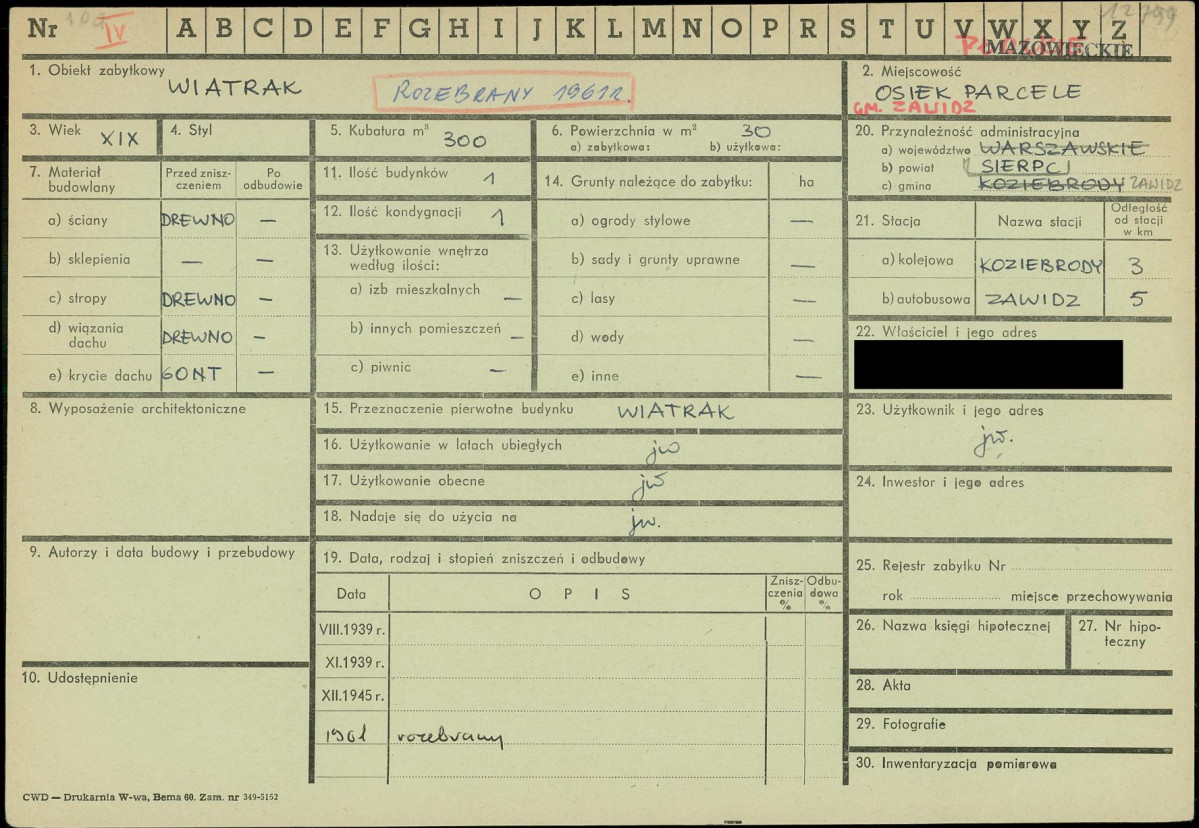 Nr IV A B C D E F G H I J K L M N O P R S T U V W X Y Z 12799
MAZOWIECKIE
1. Obiekt zabytkowy
WIATRAK
ROZEBRANY 1961r.
2. Miejscowość
OSIEK PARCELE
GM. ZAWIDZ
3. Wiek XIX
4. Styl
5. Kubatura m³
300
6. Powierzchnia w m² 30
a) zabytkowa: b) użytkowa:
20. Przynależność administracyjna
a) województwo WARSZAWSKIE
b) powiat SIERPC
c) gmina KOZIEBRODY ZAWIDZ
7. Materiał budowlany
Przed zniszczeniem
Po odbudowie
a) ściany DREWNO —
b) sklepienia — —
c) stropy DREWNO —
d) wiązania dachu DREWNO —
e) krycie dachu GONT —
11. Ilość budynków 1
12. Ilość kondygnacji 1
13. Użytkowanie wnętrza
według ilości:
a) izb mieszkalnych —
b) innych pomieszczeń —
c) piwnic —
14. Grunty należące do zabytku: ha
a) ogrody stylowe —
b) sady i grunty uprawne —
c) lasy —
d) wody —
e) inne —
21. Stacja
Nazwa stacji
Odległość
od stacji
w km
a) kolejowa KOZIEBRODY 3
b) autobusowa ZAWIDZ 5
22. Właściciel i jego adres
8. Wyposażenie architektoniczne
15. Przeznaczenie pierwotne budynku WIATRAK
16. Użytkowanie w latach ubiegłych jw
17. Użytkowanie obecne jw
18. Nadaje się do użycia na jw.
23. Użytkownik i jego adres
jw.
24. Inwestor i jego adres
9. Autorzy i data budowy i przebudowy
19. Data, rodzaj i stopień zniszczeń i odbudowy
Data
O P I S
Zniszczenia %
Odbudowa %
VIII.1939 r.
XI.1939 r.
XII.1945 r.
1961 rozebrany
25. Rejestr zabytku Nr
rok miejsce przechowywania
26. Nazwa księgi hipotecznej
27. Nr hipoteczny
10. Udostępnienie
28. Akta
29. Fotografie
30. Inwentaryzacja pomiarowa
CWD — Drukarnia W-wa, Bema 60. Zam. nr 349-5162